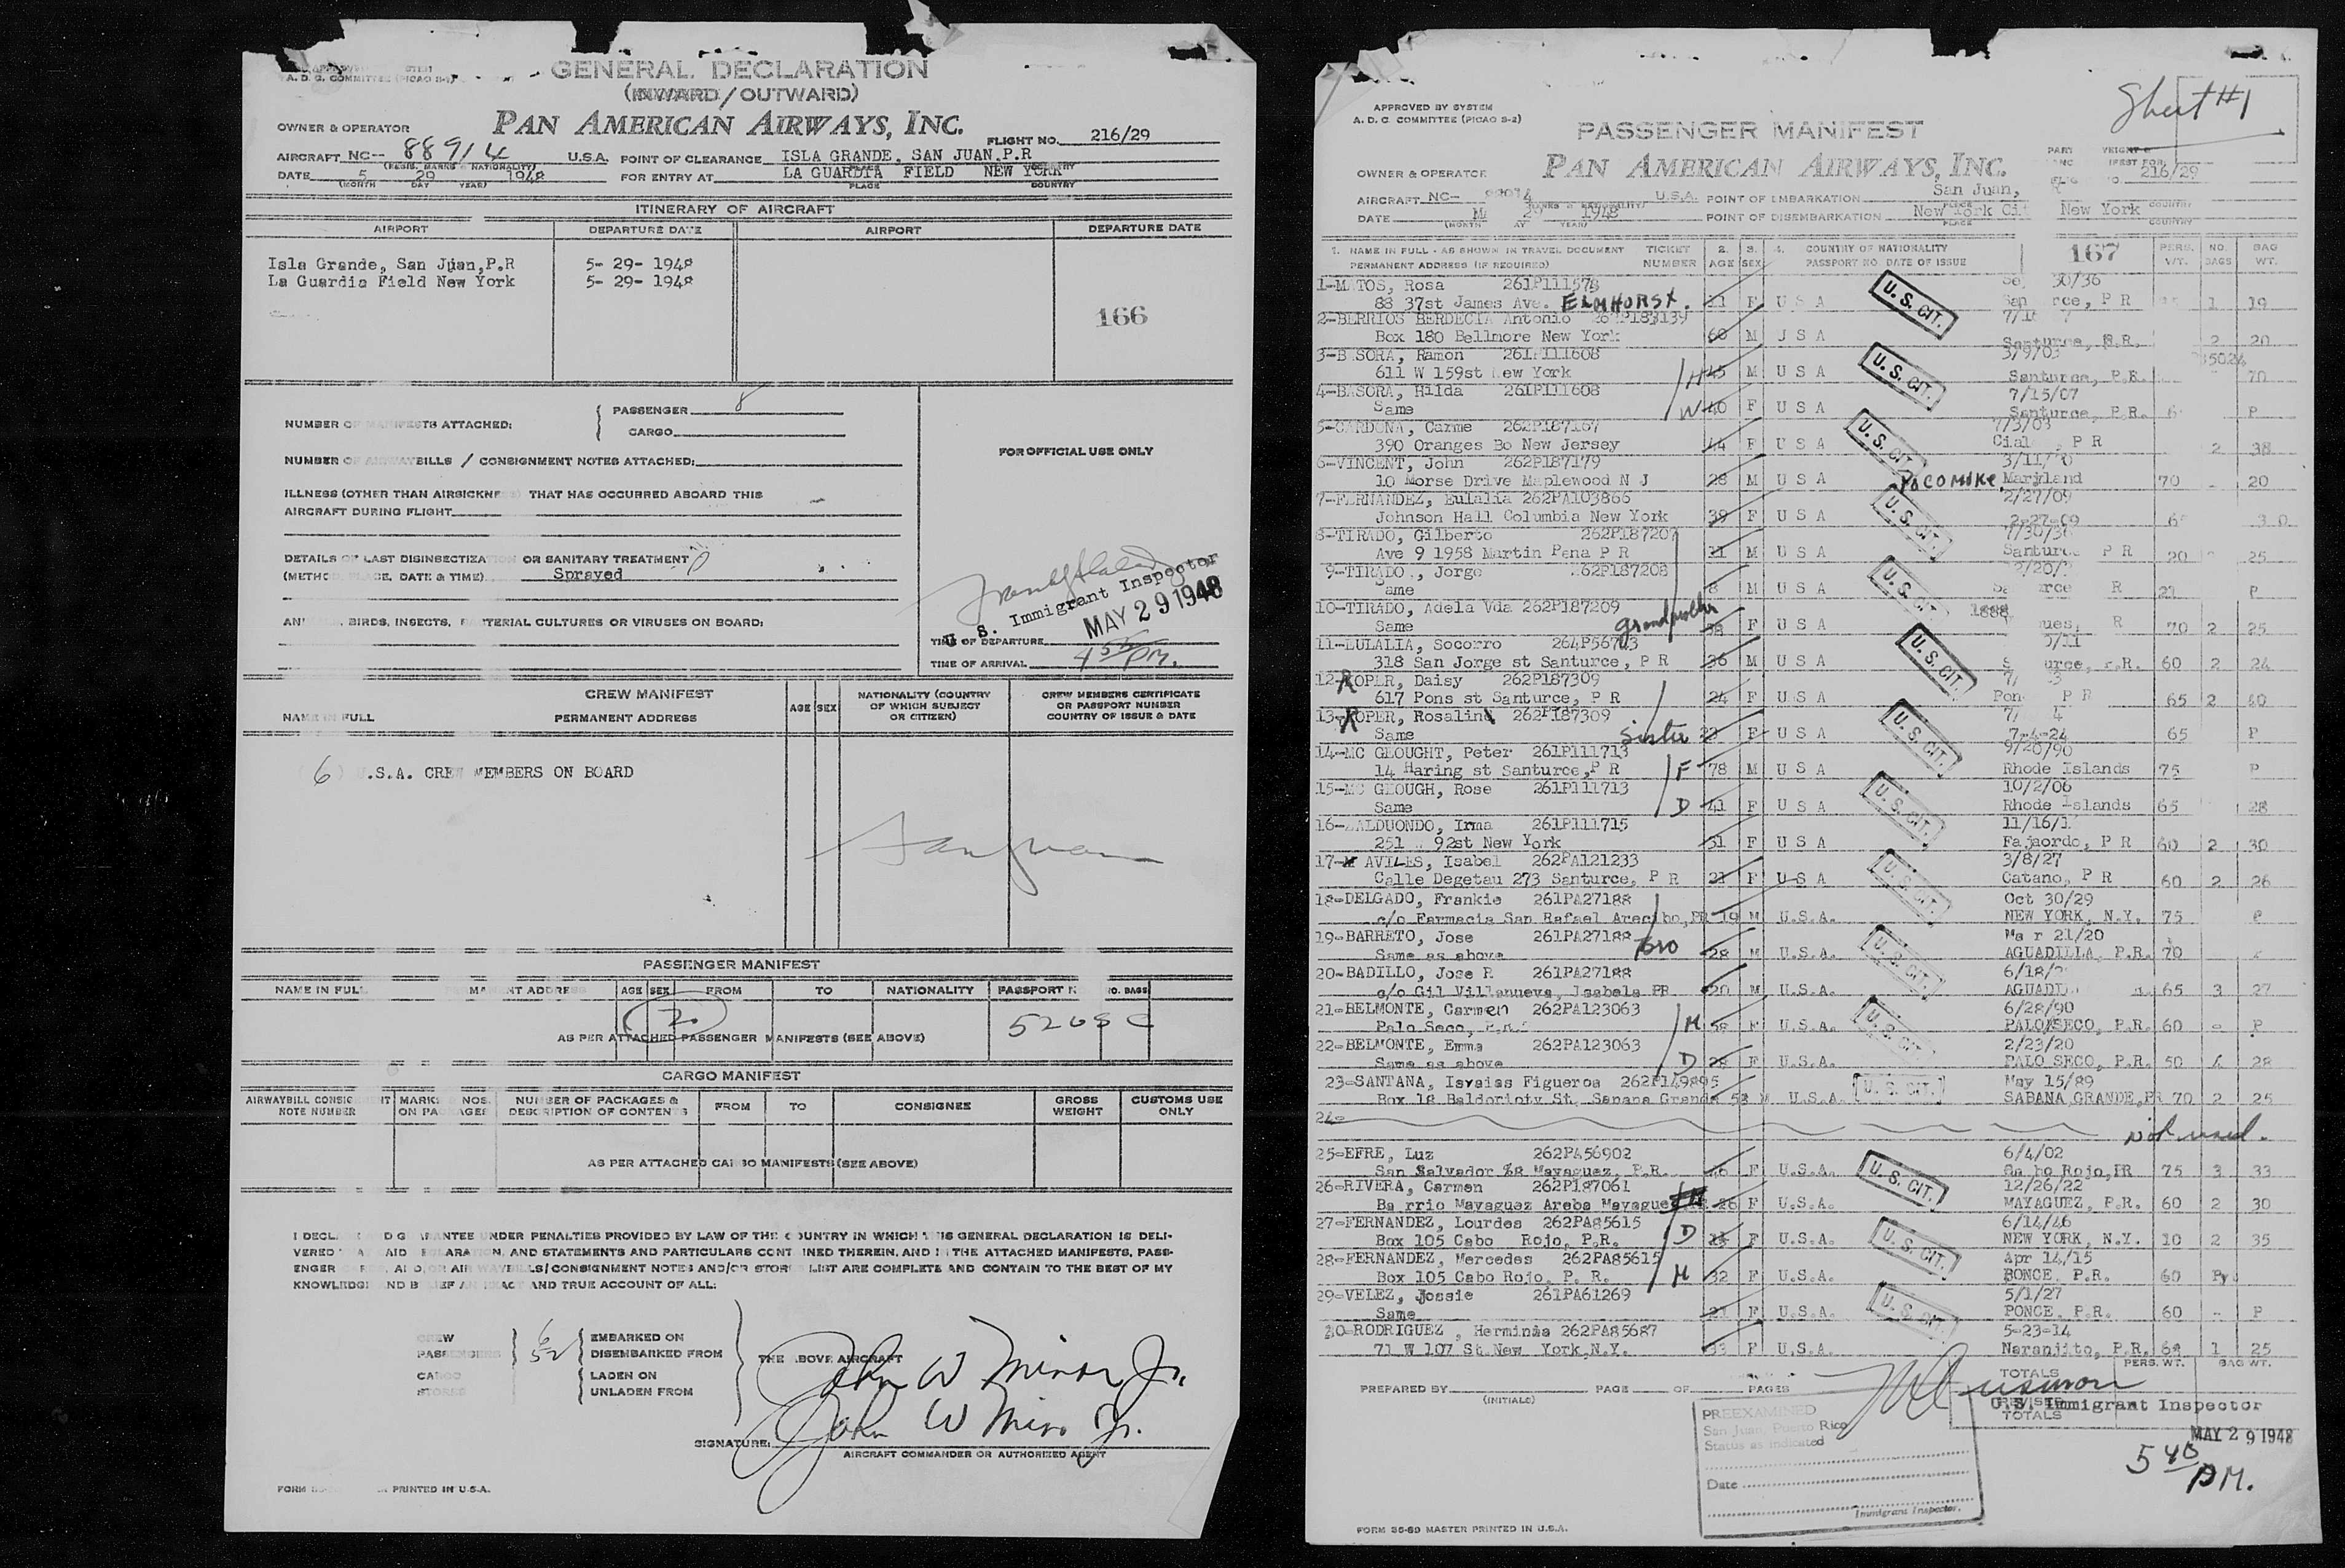 GENERAL DECLARATION
A. D. C. COMMITTEE (PICAO
(INWARD/OUTWARD)
OWNER & OPERATOR PAN AMERICAN AIRWAYS, INC. FLIGHT NO. 216/29
AIRCRAFT NC-- 88914 U.S.A. POINT OF CLEARANCE ISLA GRANDE, SAN JUAN,P.R
(REGIS. MARKS & NATIONALITY)
DATE 5 29 1948 FOR ENTRY AT LA GUARDIA FIELD NEW YORK
(MONTH DAY YEAR) PLACE COUNTRY
ITINERARY OF AIRCRAFT
AIRPORT DEPARTURE DATE AIRPORT DEPARTURE DATE
Isla Grande, San Juan,P.R 5- 29- 1948
La Guardia Field New York 5- 29- 1948
166
NUMBER OF MANIFESTS ATTACHED: PASSENGER 8
CARGO
NUMBER OF AIRWAYBILLS / CONSIGNMENT NOTES ATTACHED:
FOR OFFICIAL USE ONLY
ILLNESS (OTHER THAN AIRSICKNE THAT HAS OCCURRED ABOARD THIS
AIRCRAFT DURING FLIGHT
DETAILS OF LAST DISINSECTIZATION OR SANITARY TREATMENT
(METHOD, PLACE, DATE & TIME) Sprayed
U. S. Immigrant Inspector
MAY 29 1948
ANI , BIRDS, INSECTS, BACTERIAL CULTURES OR VIRUSES ON BOARD:
TIME OF DEPARTURE
TIME OF ARRIVAL PM.
CREW MANIFEST
NAME IN FULL PERMANENT ADDRESS AGE SEX NATIONALITY (COUNTRY OF WHICH SUBJECT OR CITIZEN) CREW MEMBERS CERTIFICATE OR PASSPORT NUMBER COUNTRY OF ISSUE & DATE
(6) U.S.A. CREW MEMBERS ON BOARD
San Juan
PASSENGER MANIFEST
NAME IN FULL ADDRESS AGE SEX FROM TO NATIONALITY PASSPORT N NO. BAGS
AS PER ATTACHED PASSENGER MANIFESTS (SEE ABOVE)
CARGO MANIFEST
AIRWAYBILL CONSIGNMENT NOTE NUMBER MARKS NOS. ON PACKAGES NUMBER OF PACKAGES & DESCRIPTION OF CONTENTS FROM TO CONSIGNEE GROSS WEIGHT CUSTOMS USE ONLY
AS PER ATTACHED CARGO MANIFESTS (SEE ABOVE)
I DECL D GUARANTEE UNDER PENALTIES PROVIDED BY LAW OF THE COUNTRY IN WHICH THIS GENERAL DECLARATION IS DELI-
VERED AID DECLARATION, AND STATEMENTS AND PARTICULARS CONTAINED THEREIN, AND IN THE ATTACHED MANIFESTS, PASS-
ENGER AND/OR AIR WAYBILLS/CONSIGNMENT NOTES AND/OR STORES LIST ARE COMPLETE AND CONTAIN TO THE BEST OF MY
KNOWLEDGE AND BELIEF AN EXACT AND TRUE ACCOUNT OF ALL:
CREW 6 EMBARKED ON
PASSENGERS 52 DISEMBARKED FROM THE ABOVE AIRCRAFT
CARGO LADEN ON
STORES UNLADEN FROM
John W Minor Jr.
John W Minor Jr.
SIGNATURE:
AIRCRAFT COMMANDER OR AUTHORIZED AGENT
FORM PRINTED IN U.S.A.
Sheet #1
APPROVED BY SYSTEM
A. D. C. COMMITTEE (PICAO S-2)
PASSENGER MANIFEST
OWNER & OPERATOR PAN AMERICAN AIRWAYS, INC. 216/29
AIRCRAFT NC-- U.S.A. POINT OF EMBARKATION San Juan,
DATE 1948 POINT OF DISEMBARKATION New York Cit New York
(MONTH YEAR) PLACE COUNTRY
1. NAME IN FULL - AS SHOWN IN TRAVEL DOCUMENT TICKET 2. 3. 4. COUNTRY OF NATIONALITY 167 PERS. NO. BAG
PERMANENT ADDRESS (IF REQUIRED) NUMBER AGE SEX PASSPORT NO. DATE OF ISSUE WT. BAGS WT.
1-MATOS, Rosa 261P111578 30/36
88 37st James Ave. ELMHORST. 11 F U S A U.S. CIT. San rce, P R 1 19
2-BERRIOS BERDECIA Antonio
Box 180 Bellmore New York 60 M U S A Santurce, P.R. 2 20
3-BASORA, Ramon 261P111608 3/9/03
611 W 159st New York H 45 M U S A U.S. CIT. Santurce, P.R. 70
4-BASORA, Hilda 261P111608 7/15/07
Same W 40 F U S A Santurce, P.R. P
5-CARDONA, Carme 262P187167 7/3/03
390 Oranges Bo New Jersey 44 F U S A U.S. CIT. Cial , P R 2 38
6-VINCENT, John 262P187179
10 Morse Drive Maplewood N J 28 M U S A POCOMIKE, Maryland 70 - 20
7-FERNANDEZ, Eulalia 262PA103866 2/27/09
Johnson Hall Columbia New York 39 F U S A U.S. CIT. 2-27-09
8-TIRADO, Gilberto 262P187207
Ave 9 1958 Martin Pena P R 11 M U S A Santurce P R 20 25
9-TIRADO , Jorge 262P187208
Same 8 M U S A U.S. CIT. R P
10-TIRADO, Adela Vda 262P187209 1888
Same grandmother F U S A R 70 2 25
11-EULALIA, Socorro 264P56743 /11
318 San Jorge st Santurce, P R 36 M U S A U.S. CIT. urce, P.R. 60 2 24
12-ROPER, Daisy 262P187309
617 Pons st Santurce, P R 24 F U S A Pon P R 65 2 40
13-ROPER, Rosalind 262P187309
Same Sister 23 F U S A U.S. CIT. 7-4-24 65 P
14-MC GLOUGHT, Peter 261P111713 9/20/90
14 Haring st Santurce,P R F 78 M U S A Rhode Islands 75 P
15-MC GEOUGH, Rose 261P111713 10/2/06
Same D 41 F U S A U.S. CIT. Rhode Islands 65 28
16-ZALDUONDO, Irma 261P111715 11/16/1
251 W 92st New York 31 F U S A Fajaordo, P R 60 2 30
17- AVILES, Isabel 262PA121233 3/8/27
Calle Degetau 273 Santurce, P R 21 F U S A U.S. CIT. Catano, P R 60 2 26
18-DELGADO, Frankie 261PA27188 Oct 30/29
c/o Farmacia San Rafael Arecibo,PR 19 M U.S.A. NEW YORK, N.Y. 75 P
19-BARRETO, Jose 261PA27188 Mar 21/20
Same as above Bro 28 M U.S.A. U.S. CIT. AGUADILLA, P.R. 70
20-BADILLO, Jose R 261PA27188 6/18/2
c/o Gil Villanueva, Isabela PR 20 M U.S.A. AGUADI 65 3 27
21-BELMONTE, Carmen 262PA123063 6/28/90
Palo Seco, P.R. M 58 F U.S.A. U.S. CIT. PALO SECO, P.R. 60 - P
22-BELMONTE, Emma 262PA123063 2/23/20
Same as above D 28 F U.S.A. PALO SECO, P.R. 50 4 28
23-SANTANA, Isyaias Figueroa 262P149895 May 15/89
Box 18 Baldorioty St. Sabana Grande 58 M U.S.A. U.S. CIT. SABANA GRANDE,PR 70 2 25
24- not used.
25-EFRE, Luz 262PA56902 6/4/02
San Salvador 78 Mayaguez, P.R. 46 F U.S.A. U.S. CIT. Cabo Rojo,PR 75 3 33
26-RIVERA, Carmen 262P187061 12/26/22
Barrio Mayaguez Areba Mayaguez 26 F U.S.A. MAYAGUEZ, P.R. 60 2 30
27-FERNANDEZ, Lourdes 262PA85615 6/14/46
Box 105 Cabo Rojo, P.R. D F U.S.A. U.S. CIT. NEW YORK, N.Y. 10 2 35
28-FERNANDEZ, Mercedes 262PA85615 Apr 14/15
Box 105 Cabo Rojo, P. R. M 32 F U.S.A. PONCE, P.R. 60
29-VELEZ, Jossie 261PA61269 5/1/27
Same 21 F U.S.A. U.S. CIT. PONCE, P.R. 60 - P
30-RODRIGUEZ , Herminia 262PA85687 5-23-14
71 W 107 St New York,N.Y. 33 F U.S.A. Naranjito, P.R. 1 25
TOTALS PERS. WT. BAG WT.
PREPARED BY (INITIALS) PAGE OF PAGES
U.S. Immigrant Inspector
TOTALS
PREEXAMINED
San Juan, Puerto Rico
Status as indicated
MAY 29 1948
5 40 PM.
Date
Immigrant Inspector.
FORM 36-69 MASTER PRINTED IN U.S.A.